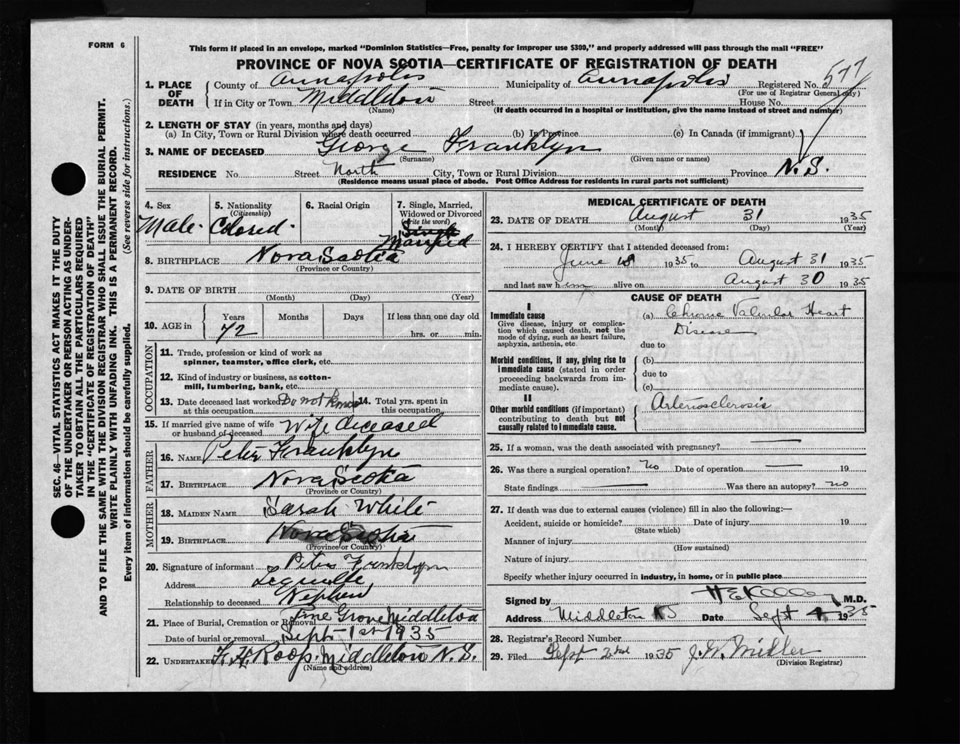 FORM 6
This form if placed in an envelope, marked "Dominion Statistics—Free, penalty for improper use $300," and properly addressed will pass through the mail "FREE"
PROVINCE OF NOVA SCOTIA—CERTIFICATE OF REGISTRATION OF DEATH
1. PLACE OF DEATH County of Annapolis Municipality of Annapolis Registered No. 577
(For use of Registrar General only)
If in City or Town Middleton Street House No.
(Name) (If death occurred in a hospital or institution, give the name instead of street and number)
2. LENGTH OF STAY (in years, months and days)
(a) In City, Town or Rural Division where death occurred (b) In Province (c) In Canada (if immigrant)
3. NAME OF DECEASED George Franklyn
(Surname) (Given name or names)
RESIDENCE No. Street North City, Town or Rural Division Province N.S.
(Residence means usual place of abode. Post Office Address for residents in rural parts not sufficient)
SEC. 46—VITAL STATISTICS ACT MAKES IT THE DUTY
OF THE UNDERTAKER OR PERSON ACTING AS UNDER-
TAKER TO OBTAIN ALL THE PARTICULARS REQUIRED
IN THE "CERTIFICATE OF REGISTRATION OF DEATH"
AND TO FILE THE SAME WITH THE DIVISION REGISTRAR WHO SHALL ISSUE THE BURIAL PERMIT.
WRITE PLAINLY WITH UNFADING INK. THIS IS A PERMANENT RECORD.
Every item of information should be carefully supplied. (See reverse side for instructions.)
4. Sex Male
5. Nationality (Citizenship) Colored
6. Racial Origin
7. Single, Married, Widowed or Divorced (Write the word) Single Married
8. BIRTHPLACE Nova Scotia
(Province or Country)
9. DATE OF BIRTH
(Month) (Day) (Year)
10. AGE in Years Months Days If less than one day old
72 hrs. or min.
OCCUPATION
11. Trade, profession or kind of work as spinner, teamster, office clerk, etc.
12. Kind of industry or business, as cotton-mill, lumbering, bank, etc.
13. Date deceased last worked at this occupation Do not know 14. Total yrs. spent in this occupation
15. If married give name of wife or husband of deceased Wife deceased
FATHER
16. NAME Peter Franklyn
17. BIRTHPLACE Nova Scotia
(Province or Country)
MOTHER
18. MAIDEN NAME Sarah White
19. BIRTHPLACE Nova Scotia
(Province or Country)
20. Signature of informant Peter Franklyn
Address Lequille
Relationship to deceased Nephew
21. Place of Burial, Cremation or Removal Pine Grove Middleton
Date of burial or removal Sept 1st 1935
22. Undertaker Roop Middleton N.S.
(Name and address)
MEDICAL CERTIFICATE OF DEATH
23. DATE OF DEATH August 31 1935
(Month) (Day) (Year)
24. I HEREBY CERTIFY that I attended deceased from:
June 1935 to August 31 1935
and last saw him alive on August 30 1935
CAUSE OF DEATH
I
Immediate cause
Give disease, injury or complication which caused death, not the mode of dying, such as heart failure, asphyxia, asthenia, etc.
(a) Chronic Valvular Heart
Disease
due to
Morbid conditions, if any, giving rise to immediate cause (stated in order proceeding backwards from immediate cause).
(b)
due to
(c)
II
Other morbid conditions (if important) contributing to death but not causally related to immediate cause.
Arteriosclerosis
25. If a woman, was the death associated with pregnancy?
26. Was there a surgical operation? no Date of operation 19
State findings Was there an autopsy? no
27. If death was due to external causes (violence) fill in also the following:—
Accident, suicide or homicide? Date of injury 19
(State which)
Manner of injury
(How sustained)
Nature of injury
Specify whether injury occurred in industry, in home, or in public place
Signed by M.D.
Address Middleton Date Sept 1935
28. Registrar's Record Number
29. Filed Sept 2nd 1935
(Division Registrar)